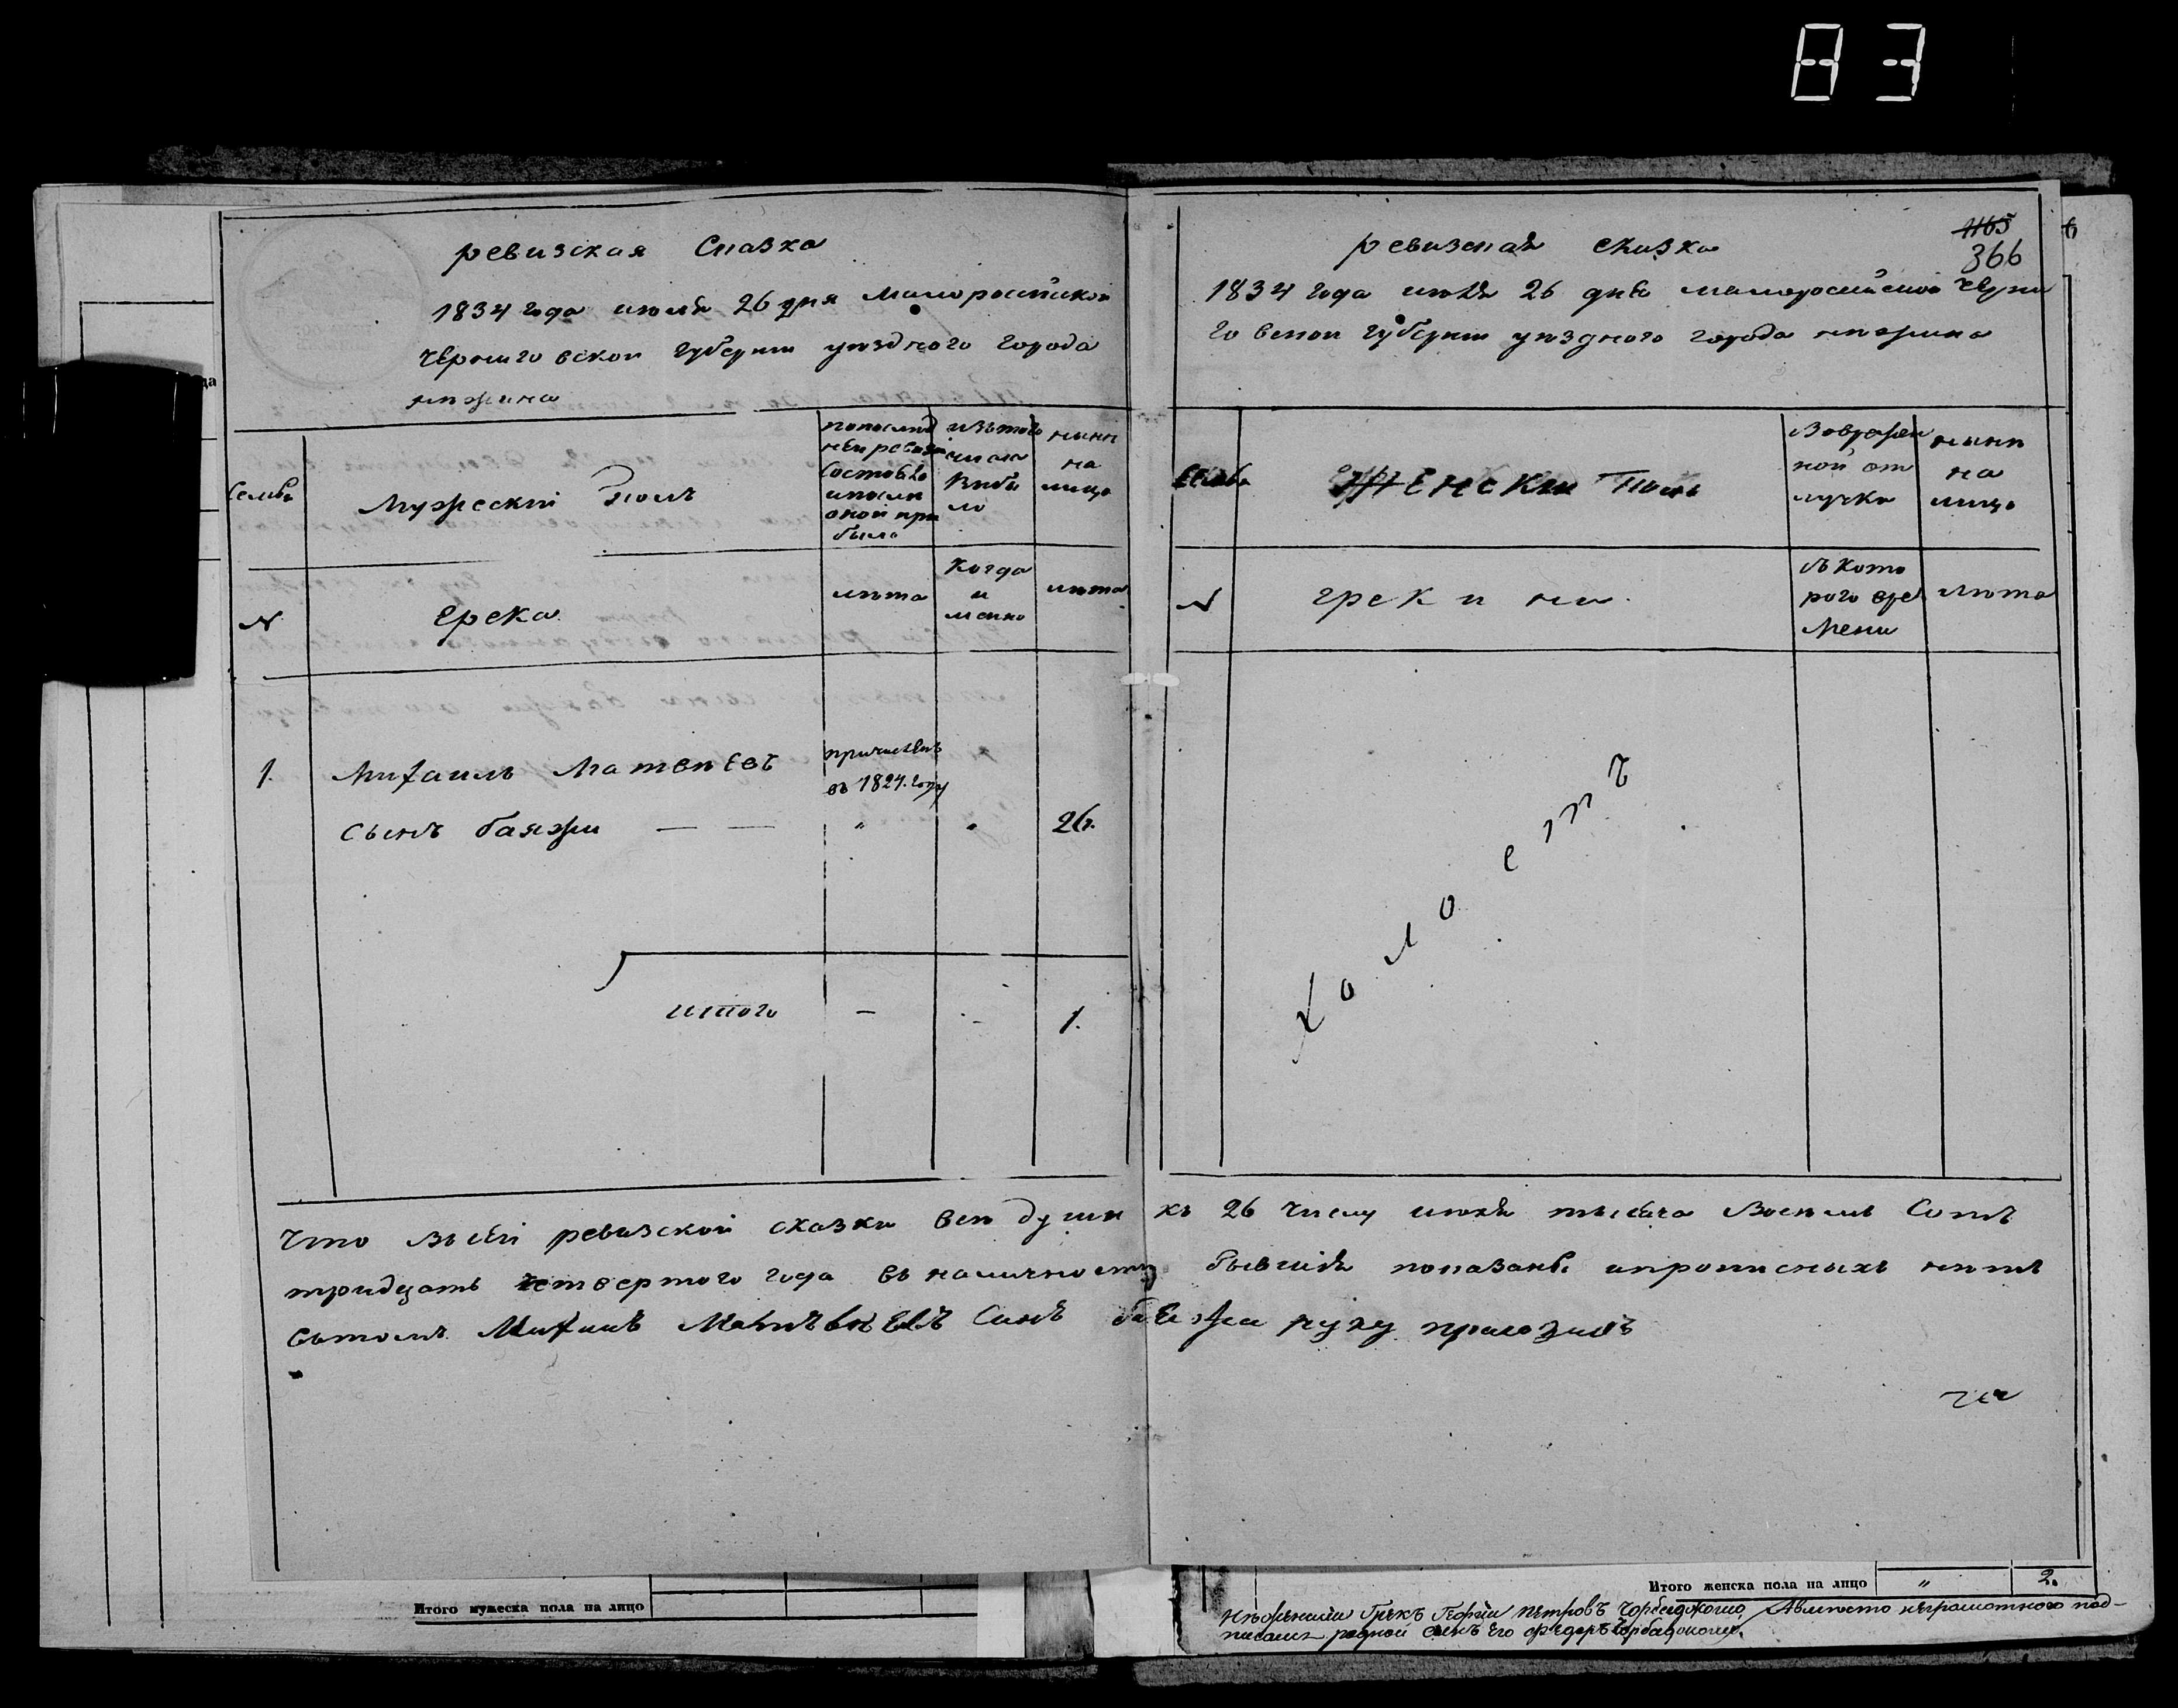 83
ревизская Сказка
1834 года июля 26 дня Малоросийской
Черниговской губернии уездного города
нежина
Семьи
Мужеский Полъ
попослед
ней ревизи
Состояло
ипосли
оной при
было
изътого
числа
Выбы
ло
нынѣ
на
лицо
№
Грека
лѣта
Когда
и
менно
лѣта
1.
Михаилъ Матвѣевъ
причисленъ
въ 1824. году
сынъ баяжи — —
"
"
26.
итого
-
-
1.
ревизская сказка
1165
366
1834 года июля 26 дня малоросийской Черни
говской губернии уездного города нѣжина
Семьи
Женски Полъ
Вовремен
ной от
лучки
нынѣ
на
лицо
№
грекини
съ кото
рого вре
мени
Лѣта
Холостъ
Что всей ревизской сказки всѣ души къ 26 числу июля тысяча Восемъ Сотъ
тридцать четвертого года въ наличности бывшия показаны ипрописныхъ нѣтъ
вътомъ Михаилъ Матвѣевъ Синъ баяжи руку приложилъ
Итого мужеска пола на лицо
Итого женска пола на лицо
"
2.
Нѣженский Грекъ Георгий Петровъ Чорбаджогло, Авместо неграмотного под-
писалъ родной сынъ Его Федоръ Чорбаджогло.